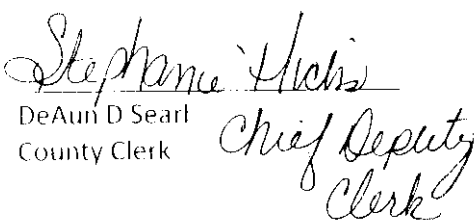 Stephanie Hicks
DeAun D Searl
County Clerk
Chief Deputy
Clerk